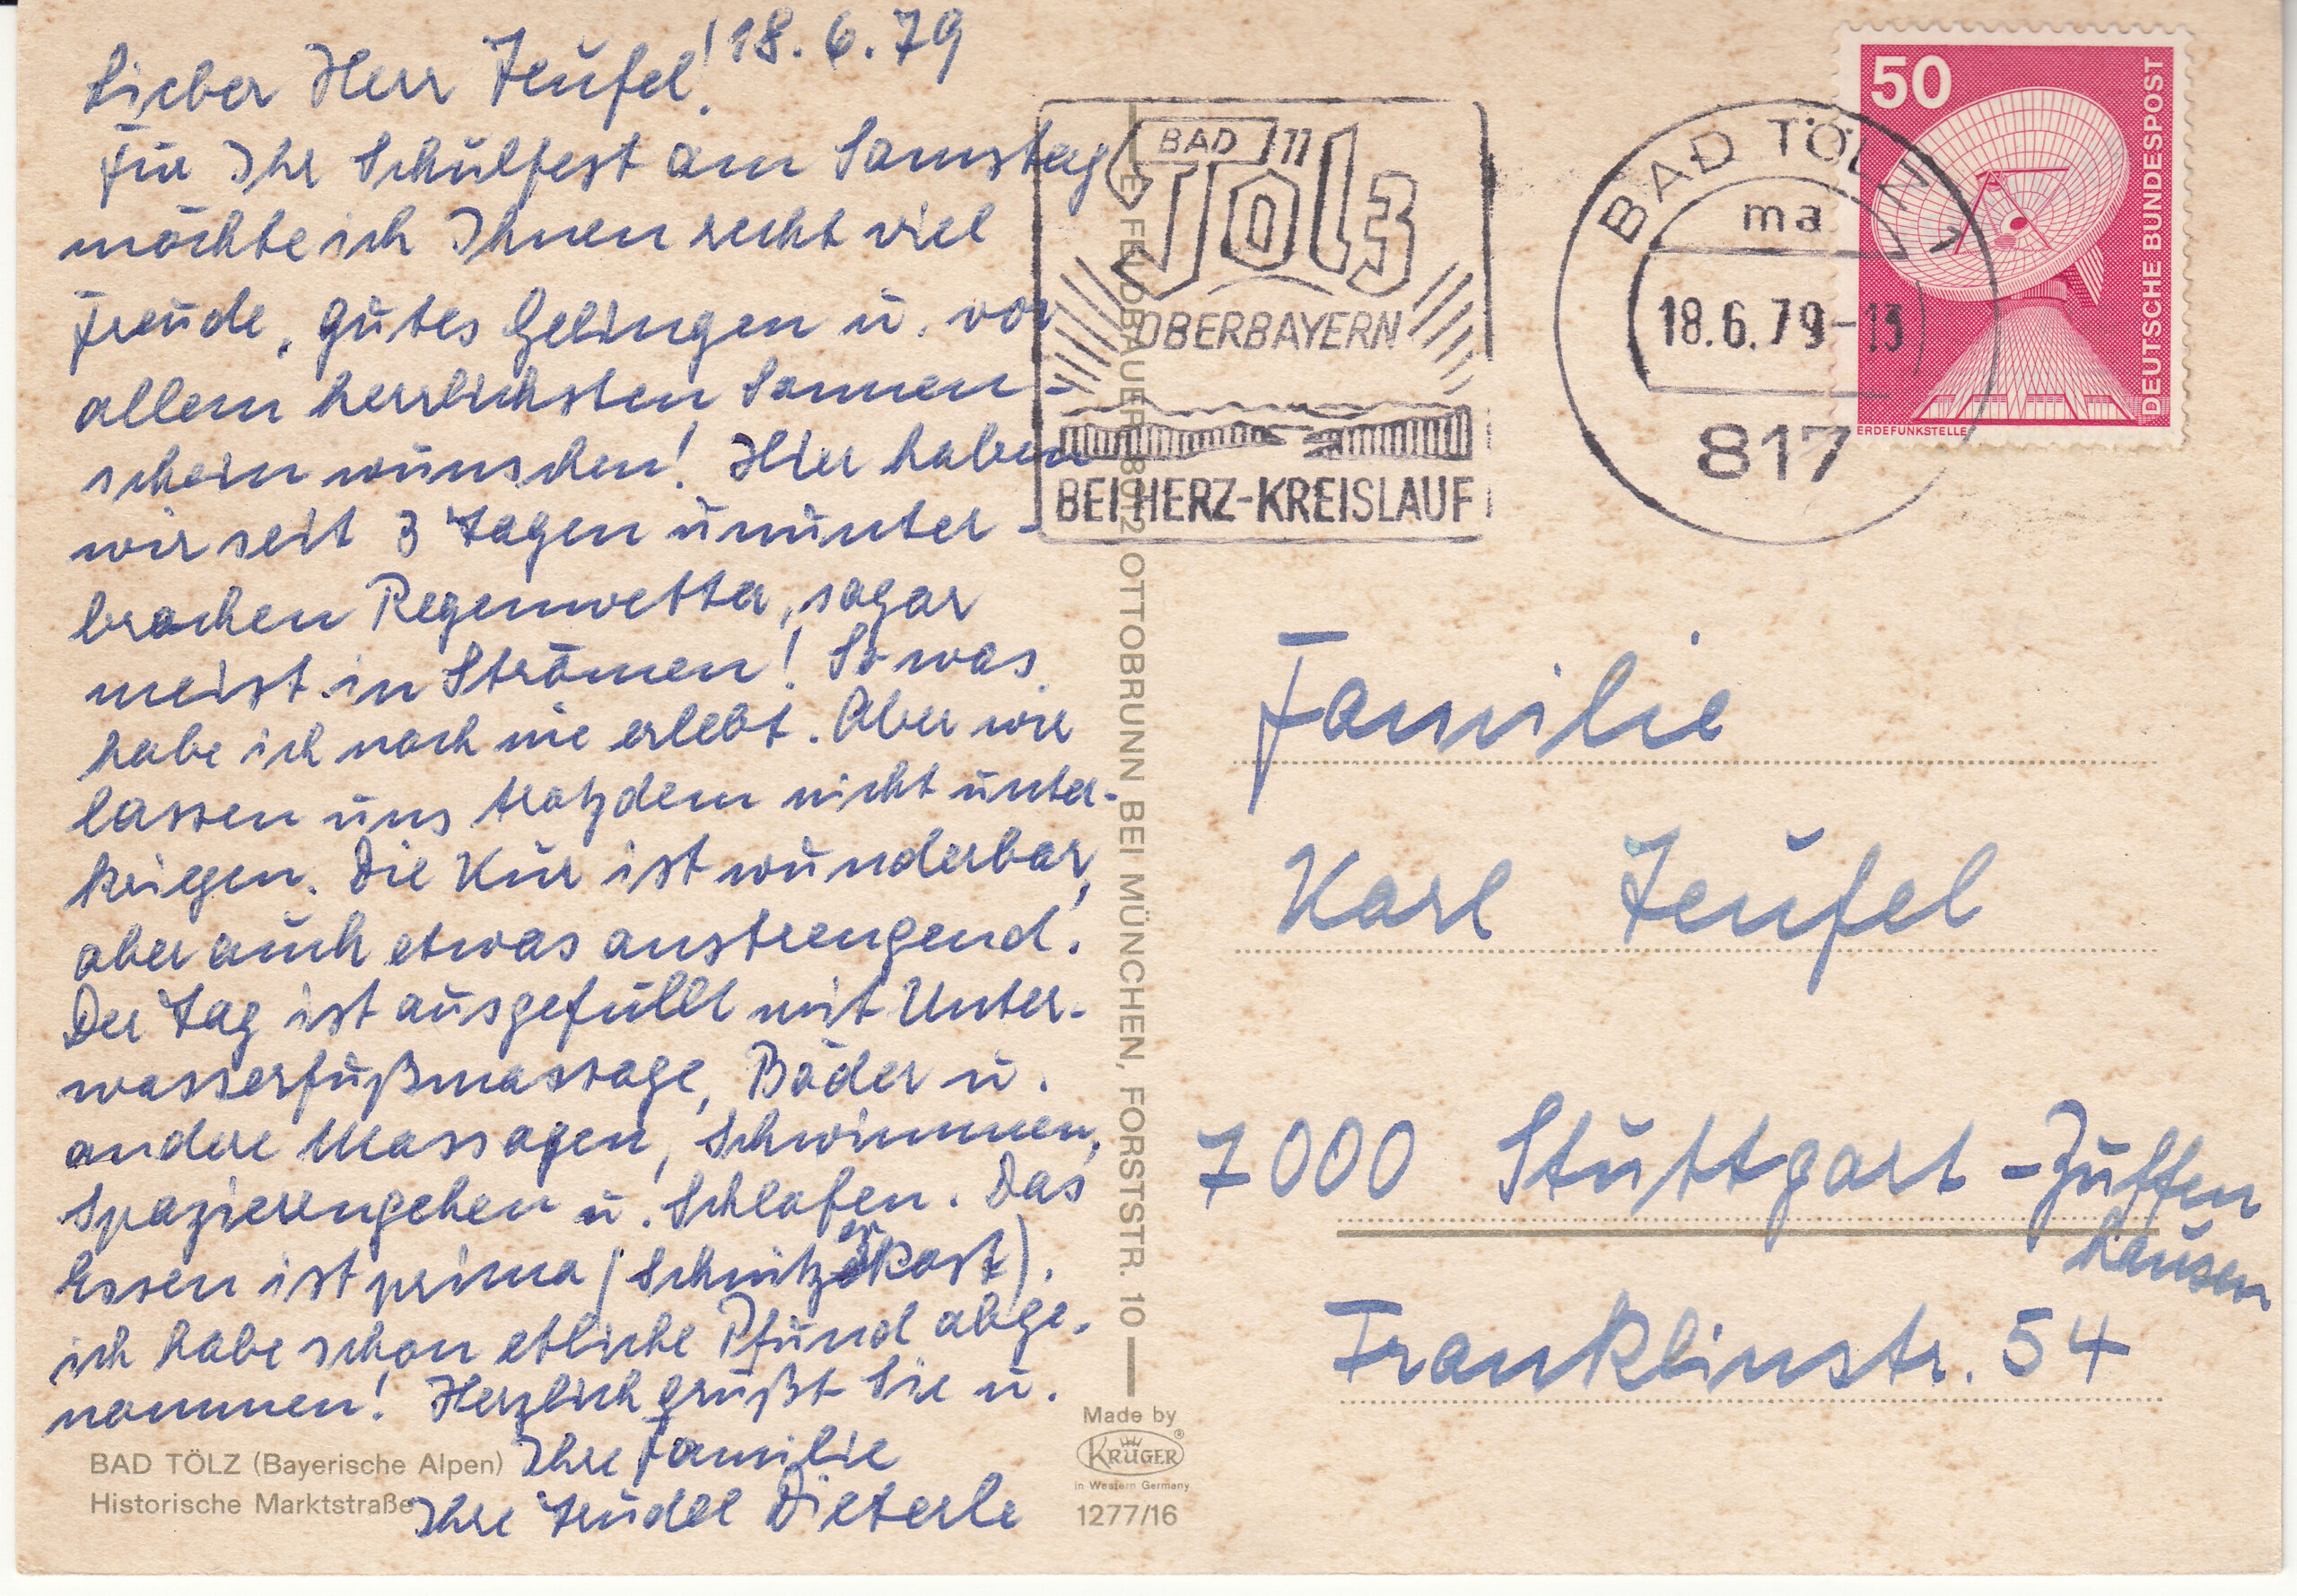 18.6.79
Lieber Herr Teufel!
Für Ihr Schulfest am Samstag
möchte ich Ihnen recht viel
Freude, gutes Gelingen u. vor
allem herrlichsten Sonnen-
schein wünschen! Hier haben
wir seit 3 Tagen ununter-
brochen Regenwetter, sogar
meist in Strömen! So was
habe ich noch nie erlebt. Aber wir
lassen uns trotzdem nicht unter-
kriegen. Die Kur ist wunderbar,
aber auch etwas anstrengend.
Der Tag ist ausgefüllt mit Unter-
wasserfußmassage, Bäder u.
andere Massagen, Schwimmen,
Spazierengehen u. Schlafen. Das
Essen ist prima (Schnitzerkost).
ich habe schon etliche Pfund abge-
nommen! Herzlich grüßt Sie u.
Ihre Familie
Ihre Trudel Dieterle
BAD TÖLZ (Bayerische Alpen)
Historische Marktstraße
FELDBAUER 8012 OTTOBRUNN BEI MÜNCHEN, FORSTSTR. 10
Made by
KRÜGER®
in Western Germany
1277/16
BAD
TÖLZ
OBERBAYERN
BEI HERZ-KREISLAUF
BAD TÖLZ 1
ma
18.6.79-13
817
50
DEUTSCHE BUNDESPOST
ERDEFUNKSTELLE
Familie
Karl Teufel
7000 Stuttgart-Zuffen
hausen
Franklinstr. 54